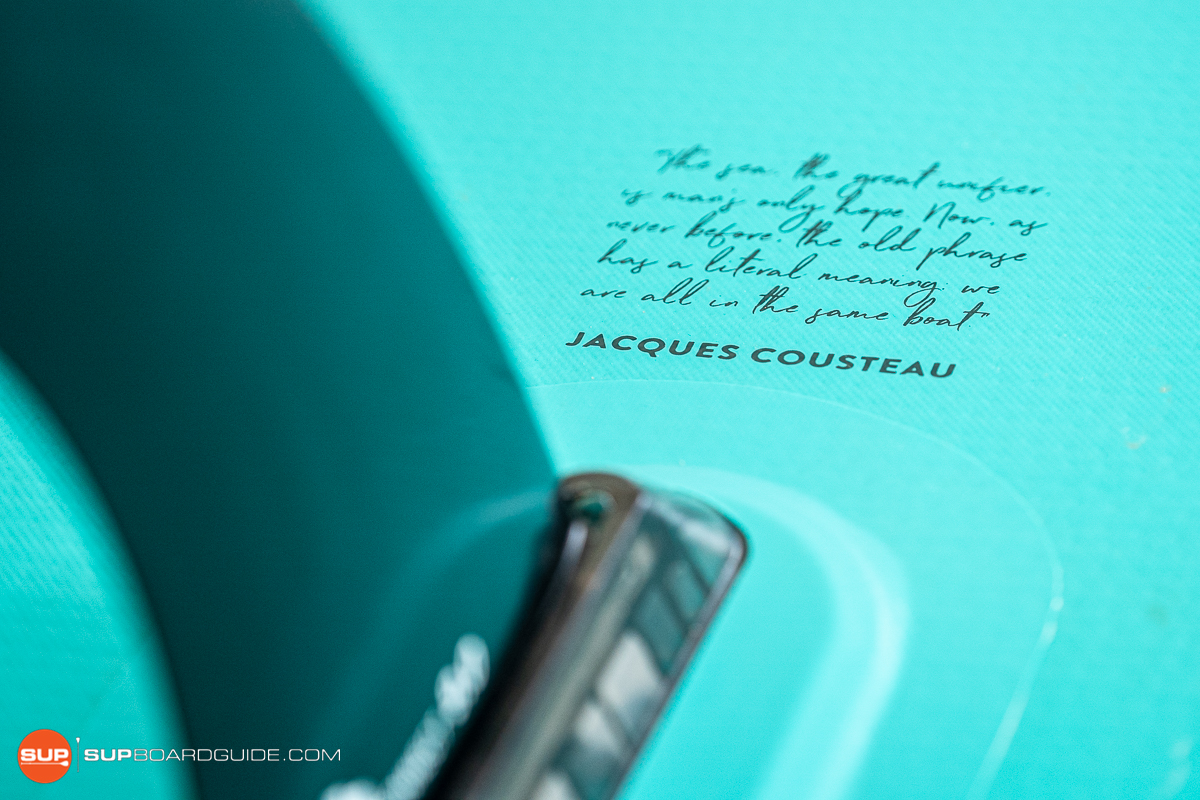 "The sea, the great unifier,
is man's only hope. Now, as
never before, the old phrase
has a literal meaning: we
are all in the same boat."
JACQUES COUSTEAU
SUP
SUPBOARDGUIDE.COM